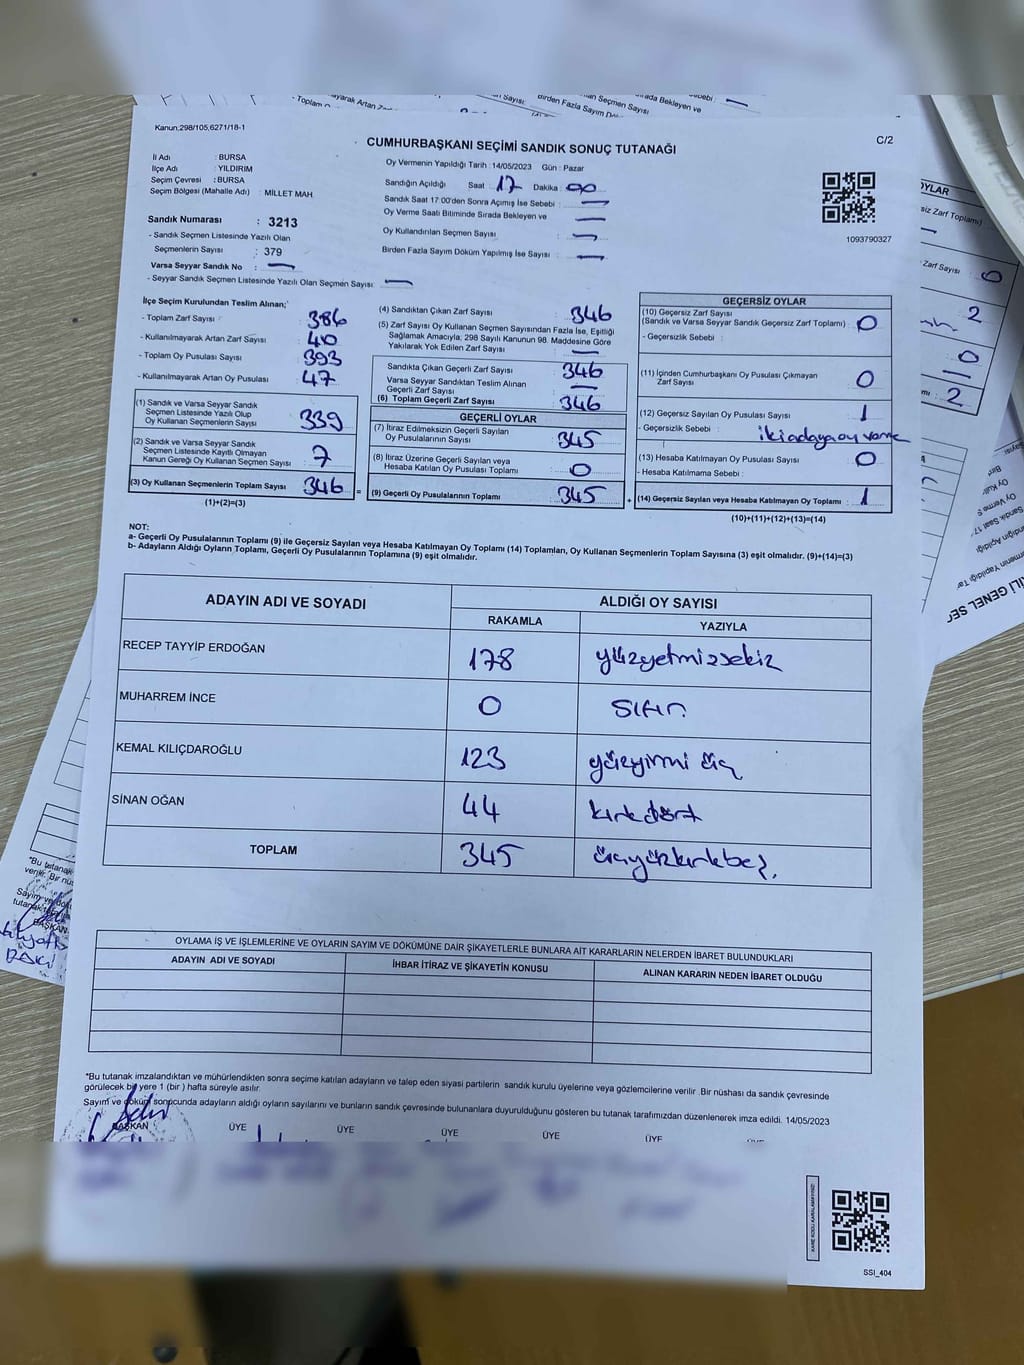 Kanun:298/105;6271/18-1
C/2
CUMHURBAŞKANI SEÇİMİ SANDIK SONUÇ TUTANAĞI
İl Adı : BURSA
İlçe Adı : YILDIRIM
Seçim Çevresi : BURSA
Seçim Bölgesi (Mahalle Adı) : MİLLET MAH
Sandık Numarası : 3213
- Sandık Seçmen Listesinde Yazılı Olan
Seçmenlerin Sayısı : 379
Varsa Seyyar Sandık No : —
- Seyyar Sandık Seçmen Listesinde Yazılı Olan Seçmen Sayısı: —
Oy Vermenin Yapıldığı Tarih :14/05/2023 Gün : Pazar
Sandığın Açıldığı Saat 17 Dakika 00
Sandık Saat 17:00'den Sonra Açılmış İse Sebebi : —
Oy Verme Saati Bitiminde Sırada Bekleyen ve —
Oy Kullandırılan Seçmen Sayısı : —
Birden Fazla Sayım Döküm Yapılmış İse Sayısı : —
1093790327
İlçe Seçim Kurulundan Teslim Alınan;
- Toplam Zarf Sayısı : 386
- Kullanılmayarak Artan Zarf Sayısı : 40
- Toplam Oy Pusulası Sayısı : 393
- Kullanılmayarak Artan Oy Pusulası : 47
(1) Sandık ve Varsa Seyyar Sandık
Seçmen Listesinde Yazılı Olup
Oy Kullanan Seçmenlerin Sayısı : 339
(2) Sandık ve Varsa Seyyar Sandık
Seçmen Listesinde Kayıtlı Olmayan
Kanun Gereği Oy Kullanan Seçmen Sayısı : 7
(3) Oy Kullanan Seçmenlerin Toplam Sayısı : 346
(1)+(2)=(3)
(4) Sandıktan Çıkan Zarf Sayısı : 346
(5) Zarf Sayısı Oy Kullanan Seçmen Sayısından Fazla İse, Eşitliği
Sağlamak Amacıyla; 298 Sayılı Kanunun 98. Maddesine Göre
Yakılarak Yok Edilen Zarf Sayısı : —
Sandıkta Çıkan Geçerli Zarf Sayısı : 346
Varsa Seyyar Sandıktan Teslim Alınan
Geçerli Zarf Sayısı : —
(6) Toplam Geçerli Zarf Sayısı : 346
GEÇERLİ OYLAR
(7) İtiraz Edilmeksizin Geçerli Sayılan
Oy Pusulalarının Sayısı : 345
(8) İtiraz Üzerine Geçerli Sayılan veya
Hesaba Katılan Oy Pusulası Toplamı : 0
= (9) Geçerli Oy Pusulalarının Toplamı : 345 +
GEÇERSİZ OYLAR
(10) Geçersiz Zarf Sayısı
(Sandık ve Varsa Seyyar Sandık Geçersiz Zarf Toplamı) : 0
- Geçersizlik Sebebi :
(11) İçinden Cumhurbaşkanı Oy Pusulası Çıkmayan
Zarf Sayısı : 0
(12) Geçersiz Sayılan Oy Pusulası Sayısı : 1
- Geçersizlik Sebebi : iki adaya oy verme
(13) Hesaba Katılmayan Oy Pusulası Sayısı : 0
- Hesaba Katılmama Sebebi :
(14) Geçersiz Sayılan veya Hesaba Katılmayan Oy Toplamı : 1
(10)+(11)+(12)+(13)=(14)
NOT:
a- Geçerli Oy Pusulalarının Toplamı (9) ile Geçersiz Sayılan veya Hesaba Katılmayan Oy Toplamı (14) Toplamları, Oy Kullanan Seçmenlerin Toplam Sayısına (3) eşit olmalıdır. (9)+(14)=(3)
b- Adayların Aldığı Oyların Toplamı, Geçerli Oy Pusulalarının Toplamına (9) eşit olmalıdır.
ADAYIN ADI VE SOYADI
ALDIĞI OY SAYISI
RAKAMLA YAZIYLA
RECEP TAYYİP ERDOĞAN 178 yüzyetmişsekiz
MUHARREM İNCE 0 sıfır
KEMAL KILIÇDAROĞLU 123 yüzyirmi üç
SİNAN OĞAN 44 kırkdört
TOPLAM 345 üçyüzkırkbeş
OYLAMA İŞ VE İŞLEMLERİNE VE OYLARIN SAYIM VE DÖKÜMÜNE DAİR ŞİKAYETLERLE BUNLARA AİT KARARLARIN NELERDEN İBARET BULUNDUKLARI
ADAYIN ADI VE SOYADI İHBAR İTİRAZ VE ŞİKAYETİN KONUSU ALINAN KARARIN NEDEN İBARET OLDUĞU
*Bu tutanak imzalandıktan ve mühürlendikten sonra seçime katılan adayların ve talep eden siyasi partilerin sandık kurulu üyelerine veya gözlemcilerine verilir. Bir nüshası da sandık çevresinde
görülecek bir yere 1 (bir ) hafta süreyle asılır.
Sayım ve döküm sonucunda adayların aldığı oyların sayılarını ve bunların sandık çevresinde bulunanlara duyurulduğunu gösteren bu tutanak tarafımızdan düzenlenerek imza edildi. 14/05/2023
BAŞKAN ÜYE ÜYE ÜYE ÜYE ÜYE
SSI_404